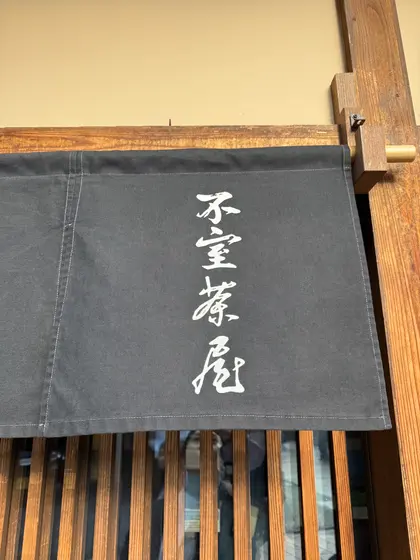 不室茶屋